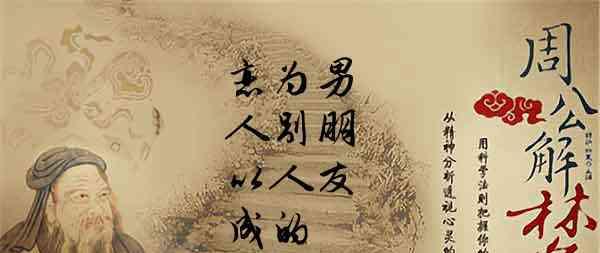 周公解梦
用科学法则把握你的
从精神分析透视心灵的
男朋友
为别人的
恋人以成